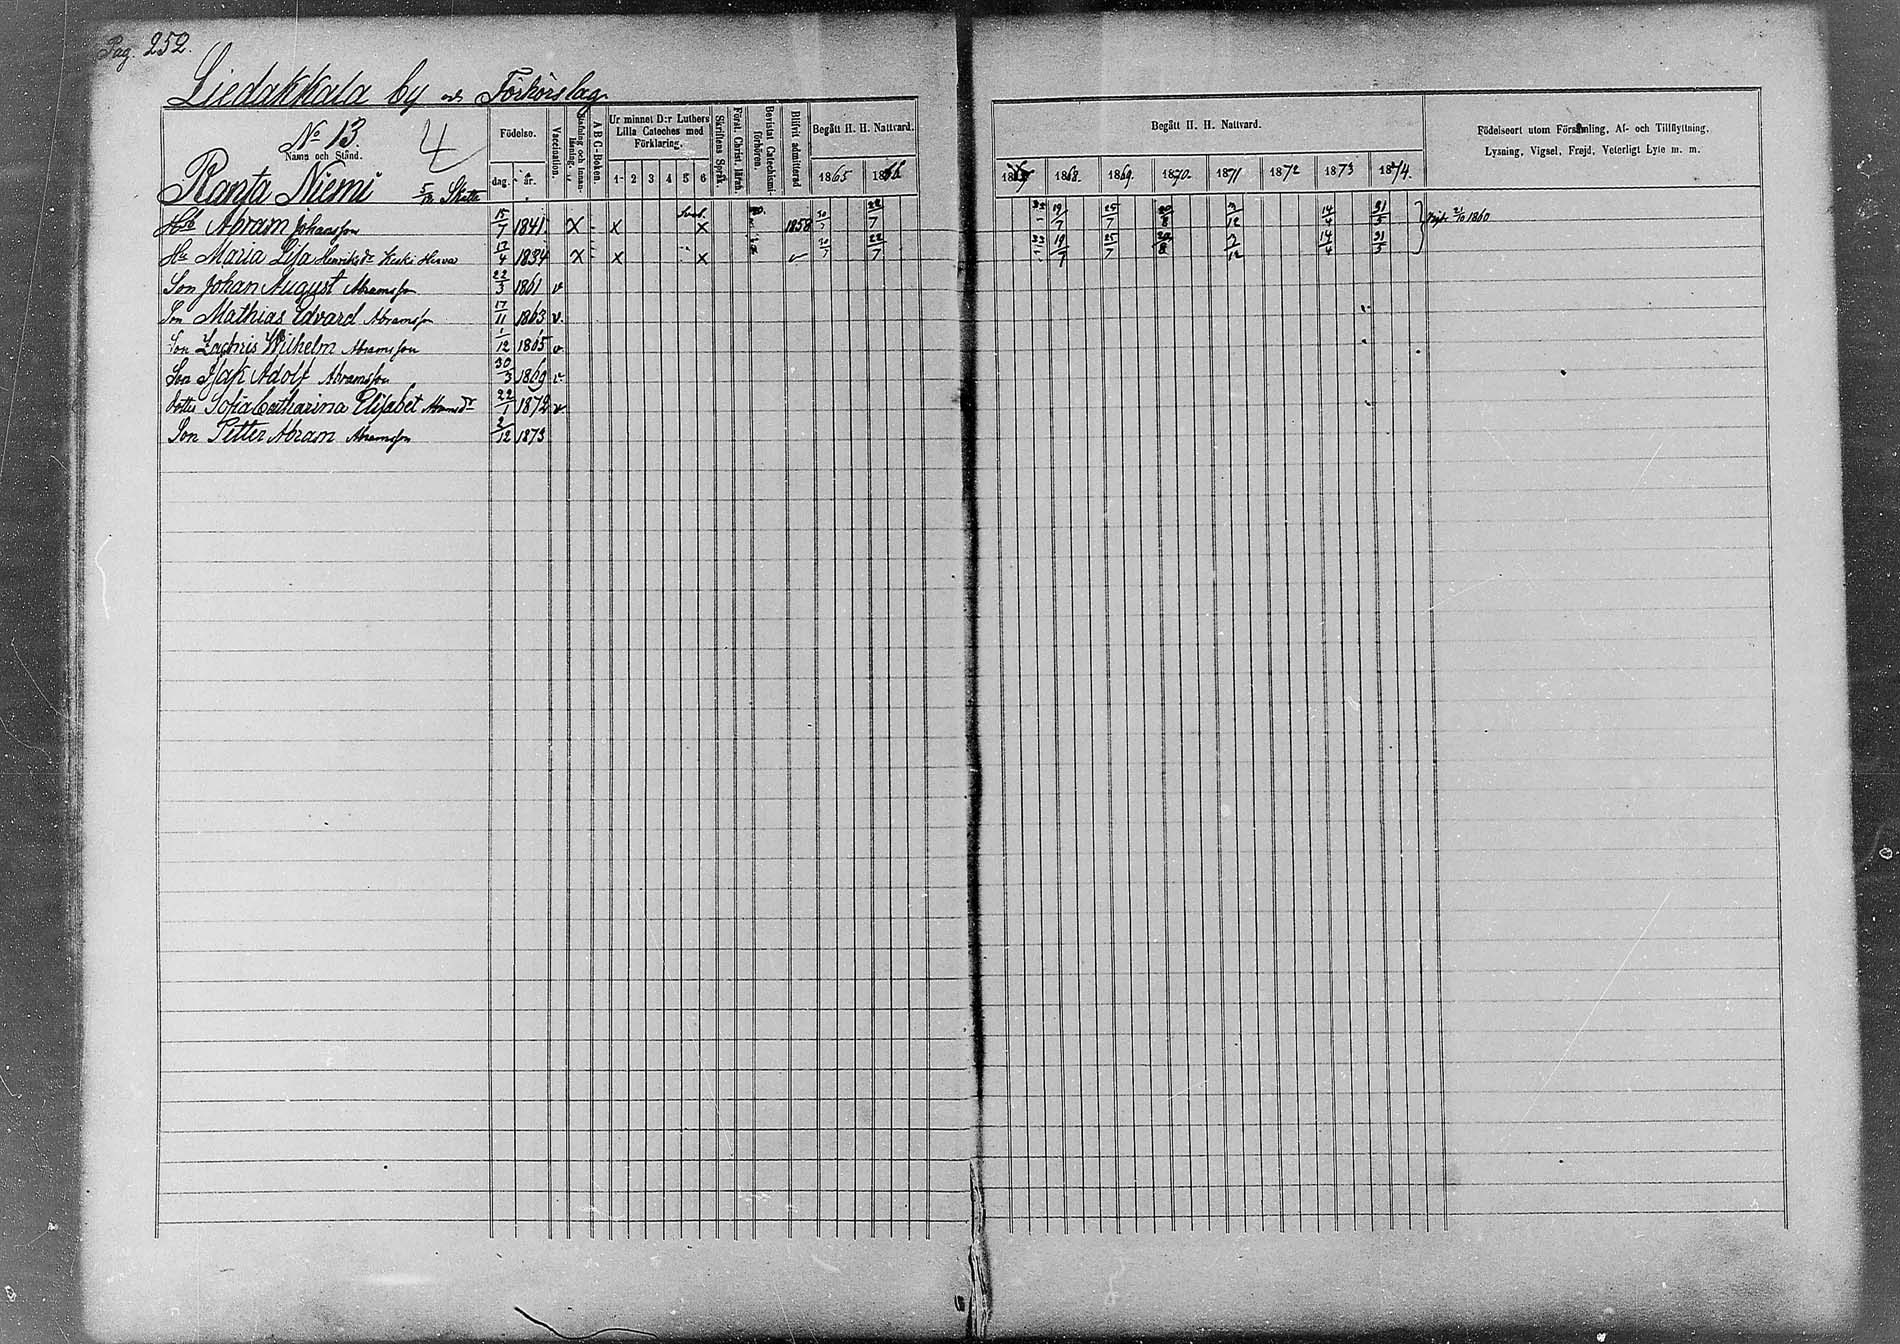 Pag. 252.
Liedakkala by och Förhörslag
No 13. 4
Namn och Stånd.
Födelse.
dag. år.
Vaccination.
Stafning och Innan-läsning.
A B C-Boken.
Ur minnet D:r Luthers Lilla Cateches med Förklaring.
1 2 3 4 5 6
Skriftens Språk
Först. Christ. läran.
Bevistat Catechismi-förhören.
Blifvit admitterad
Begått H. H. Nattvard.
1865 1866
Begått H. H. Nattvard.
1867 1868. 1869. 1870. 1871 1872 1873 1874.
Födelseort utom Församling, Af- och Tillflyttning,
Lysning, Vigsel, Frejd, Veterligt Lyte m. m.
Ranta Niemi Skatte
Abram Johansson 15/7 1841 X X Svag. X 1858 30/7 22/7 19/7 25/7 20/8 3/12 14/4 31/5 2/10 1860
Hu Maria Lisa Henriksdr Keski Herva 13/4 1834 X X X 30/7 22/7 19/7 25/7 20/8 3/12 14/4 31/5
Son Johan August Abramsson 22/3 1861 v
Son Mathias Edvard Abramsson 17/11 1863 v.
Son Zachris Wilhelm Abramsson 1/12 1865 v
Son Isak Adolf Abramsson 30/3 1869 v.
Dotter Sofia Catharina Elisabet Abramsdr 22/1 1872 v
Son Petter Abram Abramsson 2/12 1873